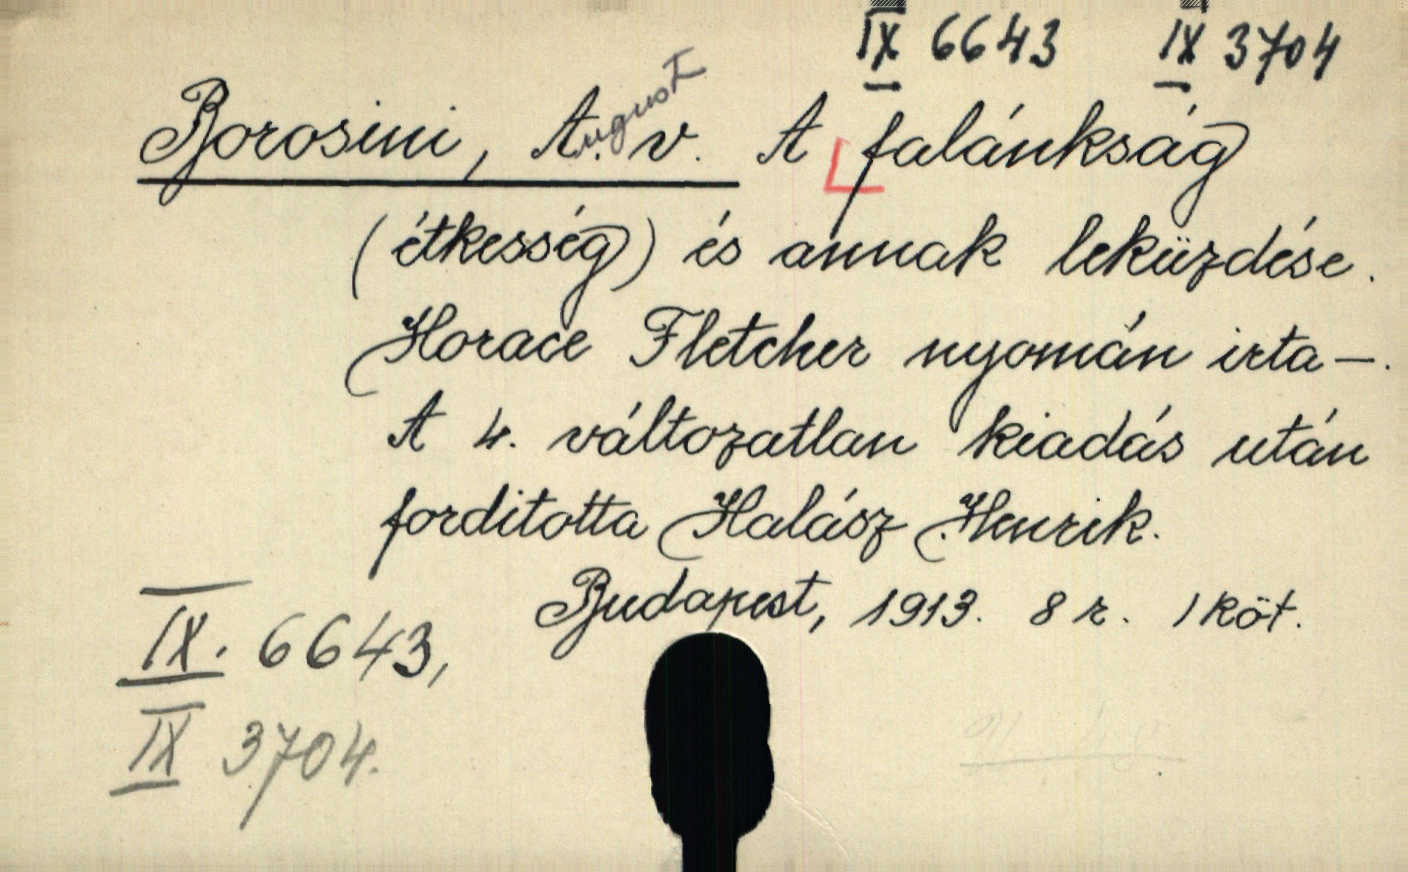 IX 6643 IX 3704
Borosini, A. ugust v. A falánkság
(étkesség) és annak leküzdése.
Horace Fletcher nyomán irta —.
A 4. változatlan kiadás után
forditotta Halász Henrik.
Budapest, 1913. 8 r. 1 köt.
IX. 6643,
IX 3704.